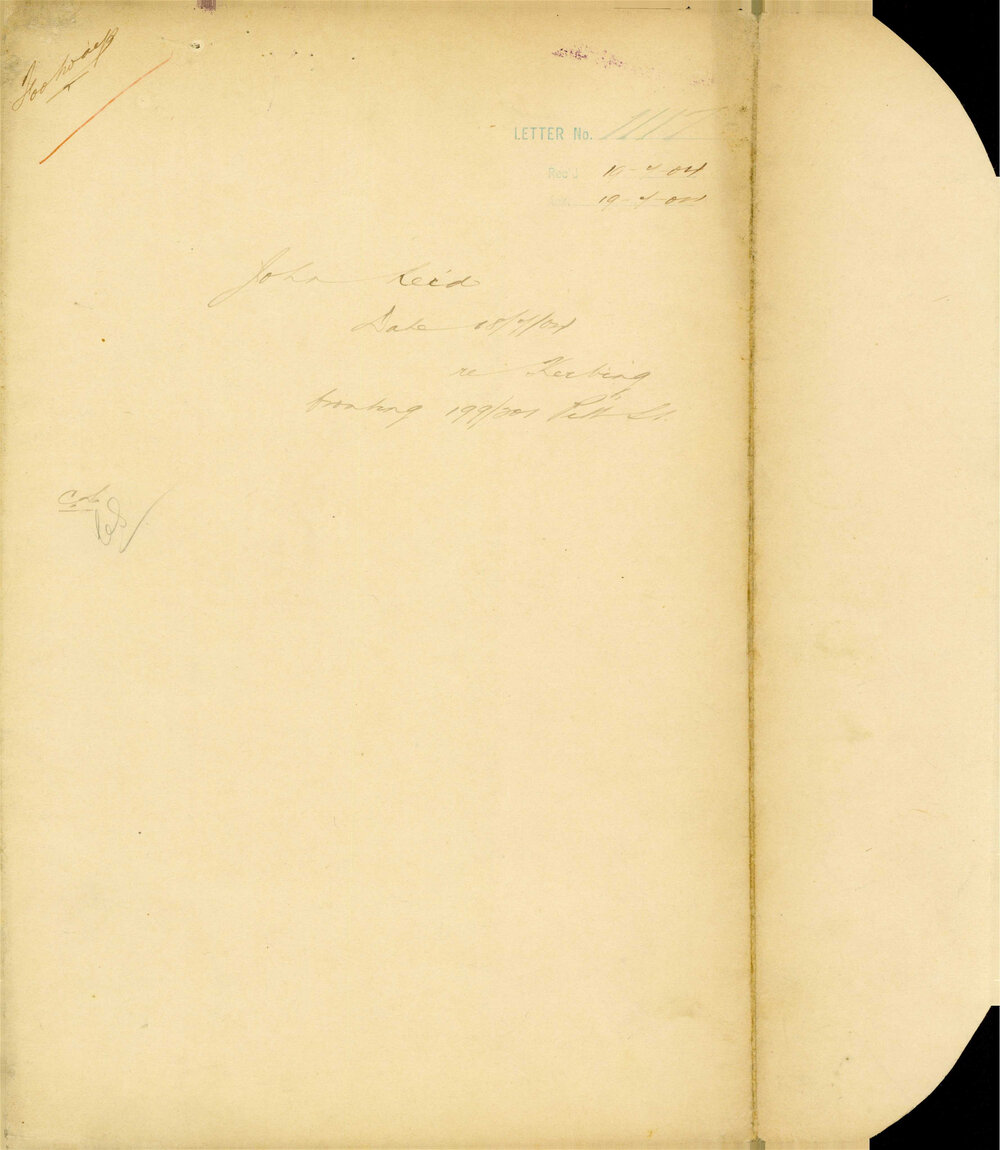 Footways
LETTER No. 1115
Rec'd 19-7-04
19-7-04
John Reid
Date 18/7/04
re Kerbing
fronting 199/201 Pitt St.